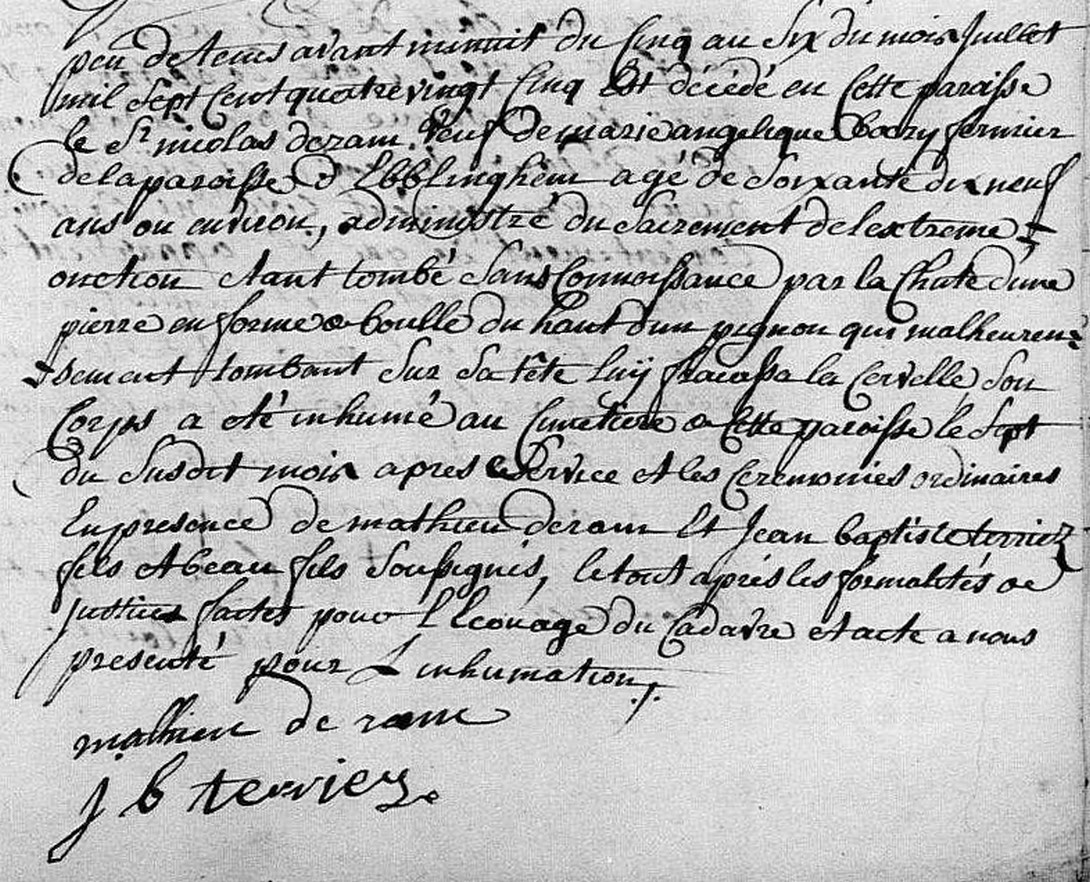 peu detems avant minuit du Cinq au Six du mois Juillet
mil Sept Cent quatre vingt Cinq Est décédé en Cette paroisse
le Sr nicolas deram. Veuf de marie angelique fermier
de la paroisse d'Ebblinghem agé de Soixante dix neuf
ans ou environ, administré du Sacrement de lextreme
onction etant tombé Sans Connoissance par la Chute d'une
pierre en forme de boulle du haut d'un pignon qui malheureu=
=sement tombant Sur Sa tête luÿ fracassa la Cervelle Son
Corps a eté inhumé au Cimetiere de Cette paroisse le Sept
du Susdit mois apres le Service et les Ceremonies ordinaires
En presence de mathieu deram Et Jean baptiste terriez
fils et beau fils Soussignés, le tout aprés les formalités de
justices faites pour du Cadavre et acte a nous
presenté pour L'inhumation./.
mathieu de ram
j b terriez.